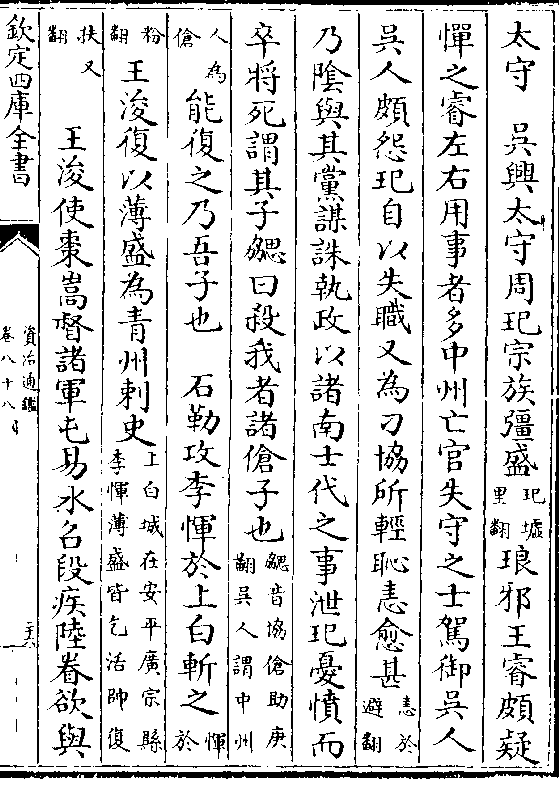 太守　吳興太守周玘宗族彊盛玘墟里翻琅邪王睿頗疑
憚之睿左右用事者多中州亡官失守之士駕御吳人
吳人頗怨玘自以失職又為刁協所輕恥恚愈甚恚於避翻
乃陰與其黨謀誅執政以諸南士代之事泄玘憂憤而
卒將死謂其子勰曰殺我者諸傖子也勰音協傖助庚翻吳人謂中州
人為傖能復之乃吾子也　石勒攻李惲於上白斬之惲於
粉翻王浚復以薄盛為青州刺史上白城在安平廣宗縣李惲薄盛皆乞活帥復
扶又翻　王浚使棗嵩督諸軍屯易水名段疾陸眷欲與
欽定四庫全書
資治通鑑
卷八十八